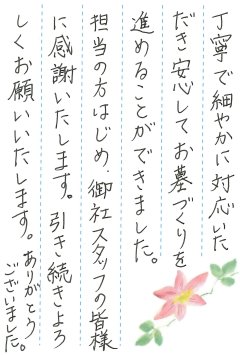 丁寧で細やかに対応いた
だき安心してお墓づくりを
進めることができました。
担当の方はじめ、御社スタッフの皆様
に感謝いたします。引き続きよろ
しくお願いいたします。ありがとう
ございました。